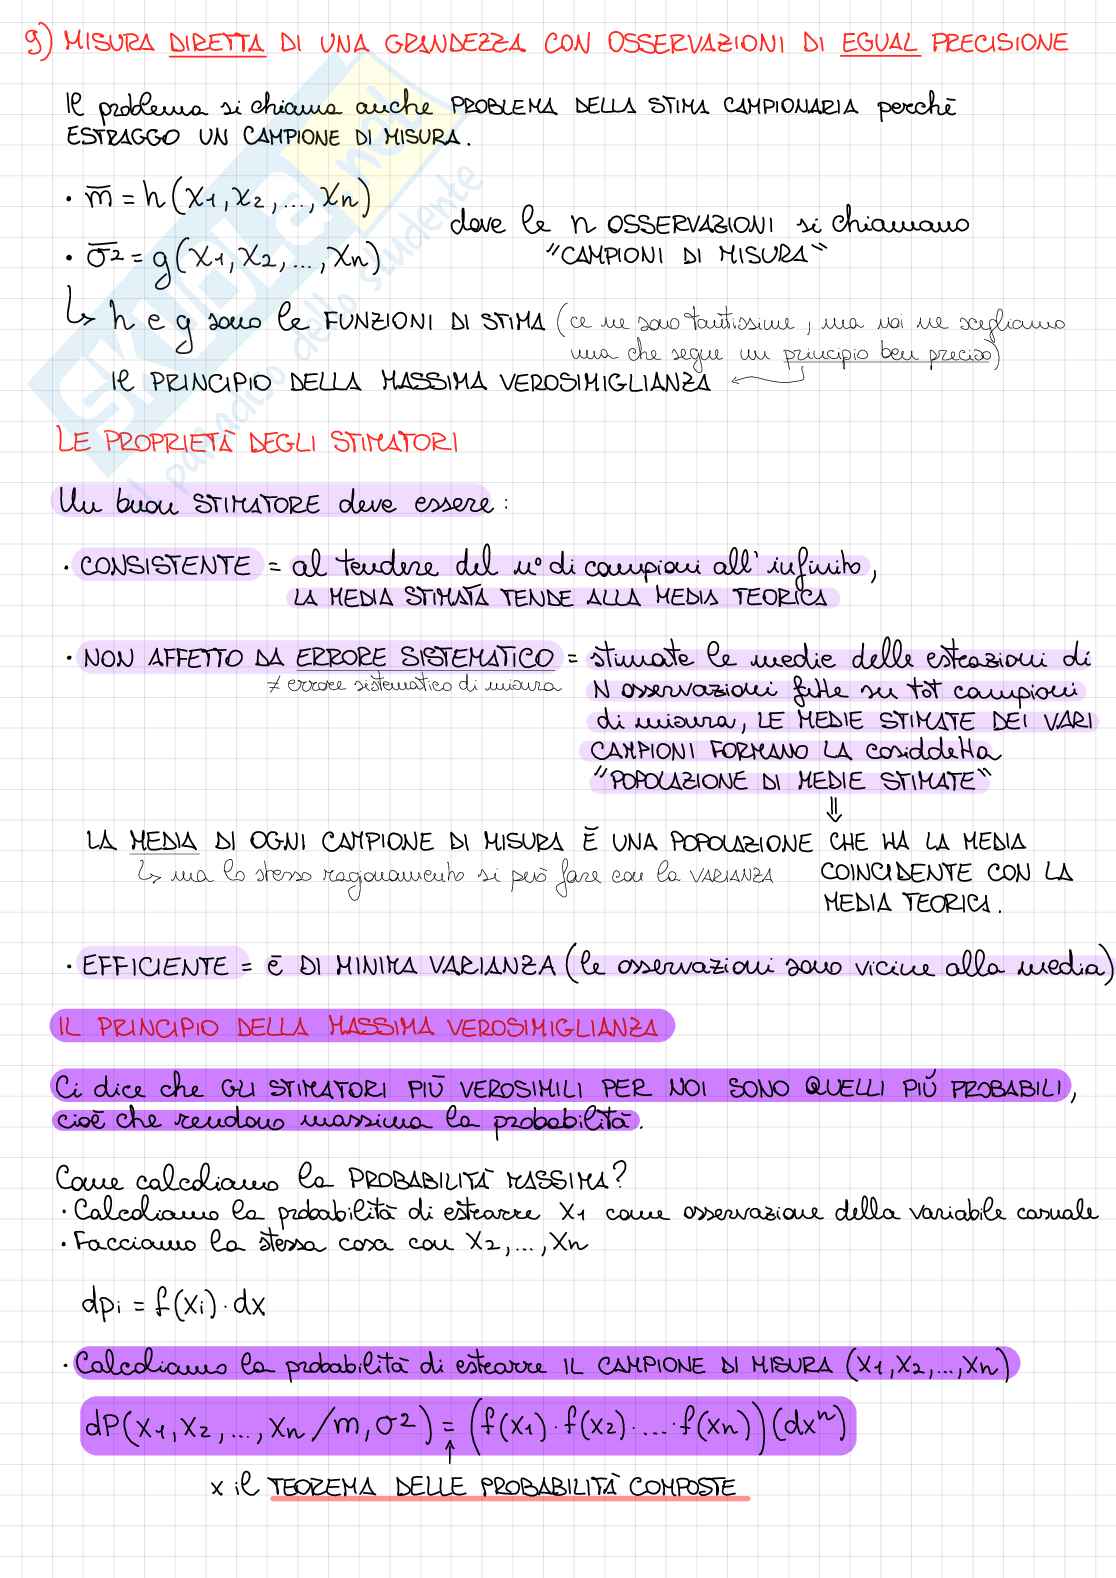 9) MISURA DIRETTA DI UNA GRANDEZZA CON OSSERVAZIONI DI EGUAL PRECISIONE
Il problema si chiama anche PROBLEMA DELLA STIMA CAMPIONARIA perchè
ESTRAGGO UN CAMPIONE DI MISURA.
• m̅ = h(X1, X2, ..., Xn)
dove le n OSSERVAZIONI si chiamano
• σ̅² = g(X1, X2, ..., Xn)
"CAMPIONI DI MISURA"
↳ h e g sono le FUNZIONI DI STIMA (ce ne sono tantissime, ma noi ne scegliamo
una che segue un principio ben preciso)
Il PRINCIPIO DELLA MASSIMA VEROSIMIGLIANZA ←
LE PROPRIETÀ DEGLI STIMATORI
Un buon STIMATORE deve essere:
• CONSISTENTE = al tendere del n° di campioni all'infinito,
LA MEDIA STIMATA TENDE ALLA MEDIA TEORICA
• NON AFFETTO DA ERRORE SISTEMATICO = stimate le medie delle estrazioni di
≠ errore sistematico di misura
N osservazioni fatte su tot campioni
di misura, LE MEDIE STIMATE DEI VARI
CAMPIONI FORMANO LA cosiddetta
"POPOLAZIONE DI MEDIE STIMATE"
⇓
LA MEDIA DI OGNI CAMPIONE DI MISURA È UNA POPOLAZIONE CHE HA LA MEDIA
↳ ma lo stesso ragionamento si può fare con la VARIANZA
COINCIDENTE CON LA
MEDIA TEORICA.
• EFFICIENTE = è DI MINIMA VARIANZA (le osservazioni sono vicine alla media)
IL PRINCIPIO DELLA MASSIMA VEROSIMIGLIANZA
Ci dice che GLI STIMATORI PIÙ VEROSIMILI PER NOI SONO QUELLI PIÙ PROBABILI,
cioè che rendono massima la probabilità.
Come calcoliamo la PROBABILITÀ MASSIMA?
• Calcoliamo la probabilità di estrarre X1 come osservazione della variabile casuale
• Facciamo la stessa cosa con X2, ..., Xn
dpi = f(xi) · dx
• Calcoliamo la probabilità di estrarre IL CAMPIONE DI MISURA (X1, X2, ..., Xn)
dP(X1, X2, ..., Xn / m, σ²) = (f(x1) · f(x2) · ... · f(xn)) (dxⁿ)
↑
x il TEOREMA DELLE PROBABILITÀ COMPOSTE
SKUOLA.net
il paradiso dello studente